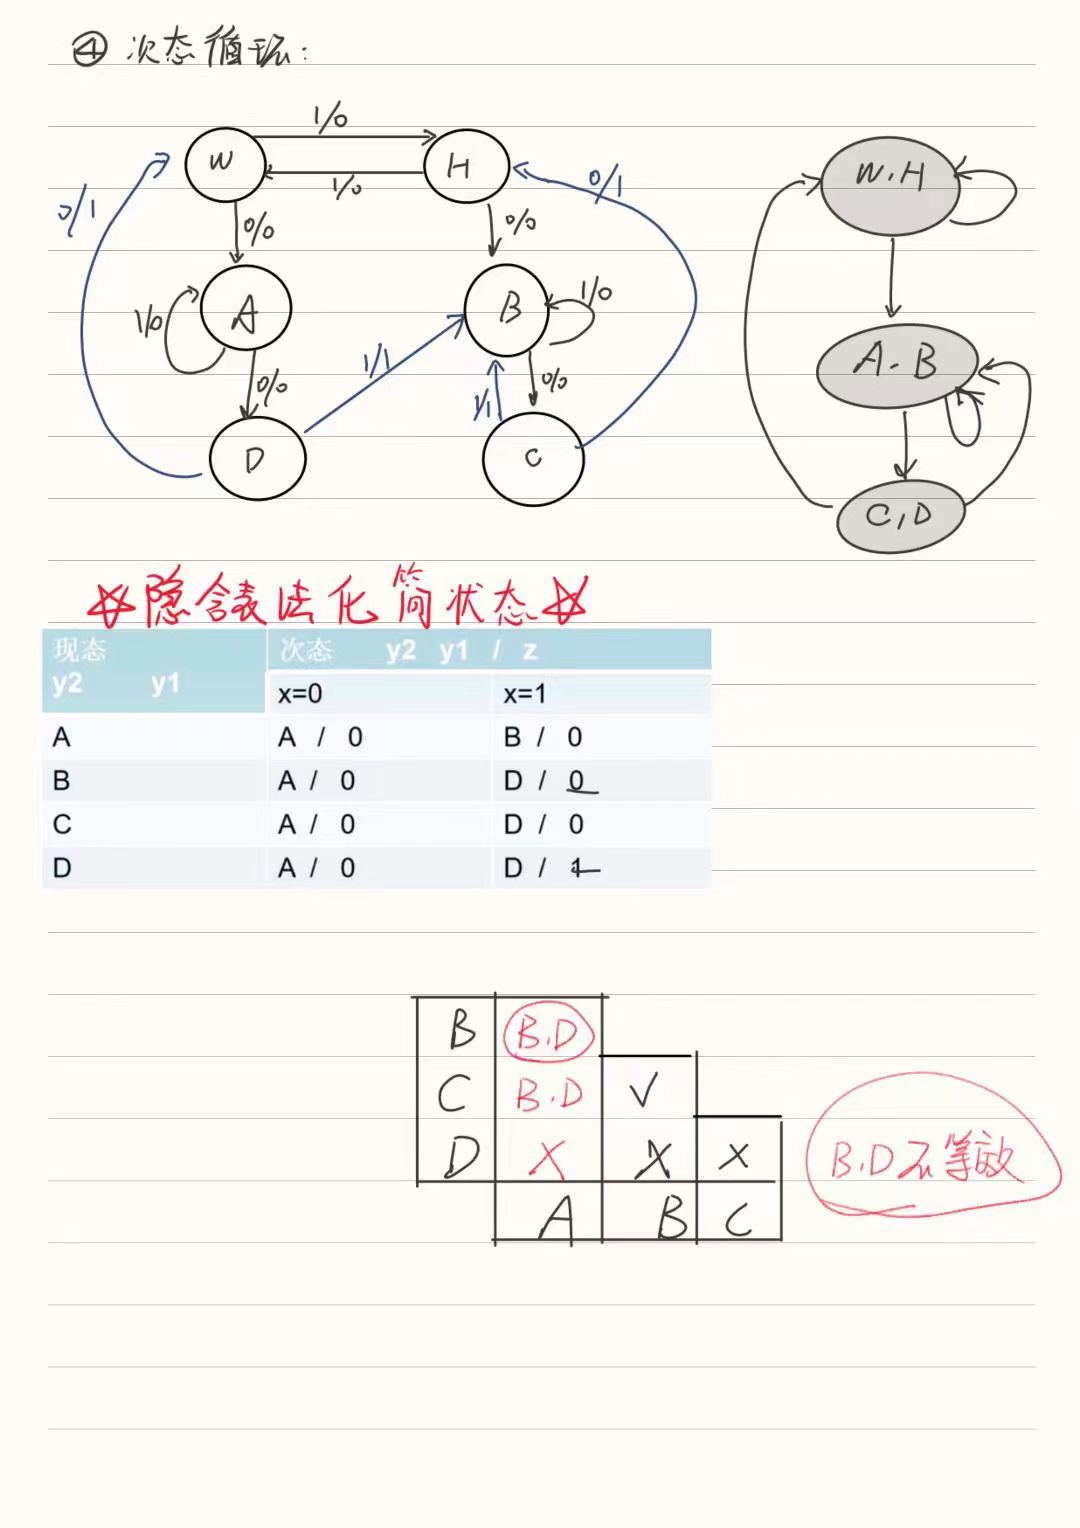 ④ 次态循环：
1/0
W
H
1/0
0/1
0/1
0/0
0/0
W.H
A
B
1/0
1/0
1/1
0/0
1/1
0/0
A-B
D
C
C,D
☆隐含表法化简状态☆
现态 次态 y2 y1 / z
y2 y1 x=0 x=1
A A / 0 B / 0
B A / 0 D / 0
C A / 0 D / 0
D A / 0 D / 1
B B.D
C B.D √
D X X X
A B C
B.D不等效